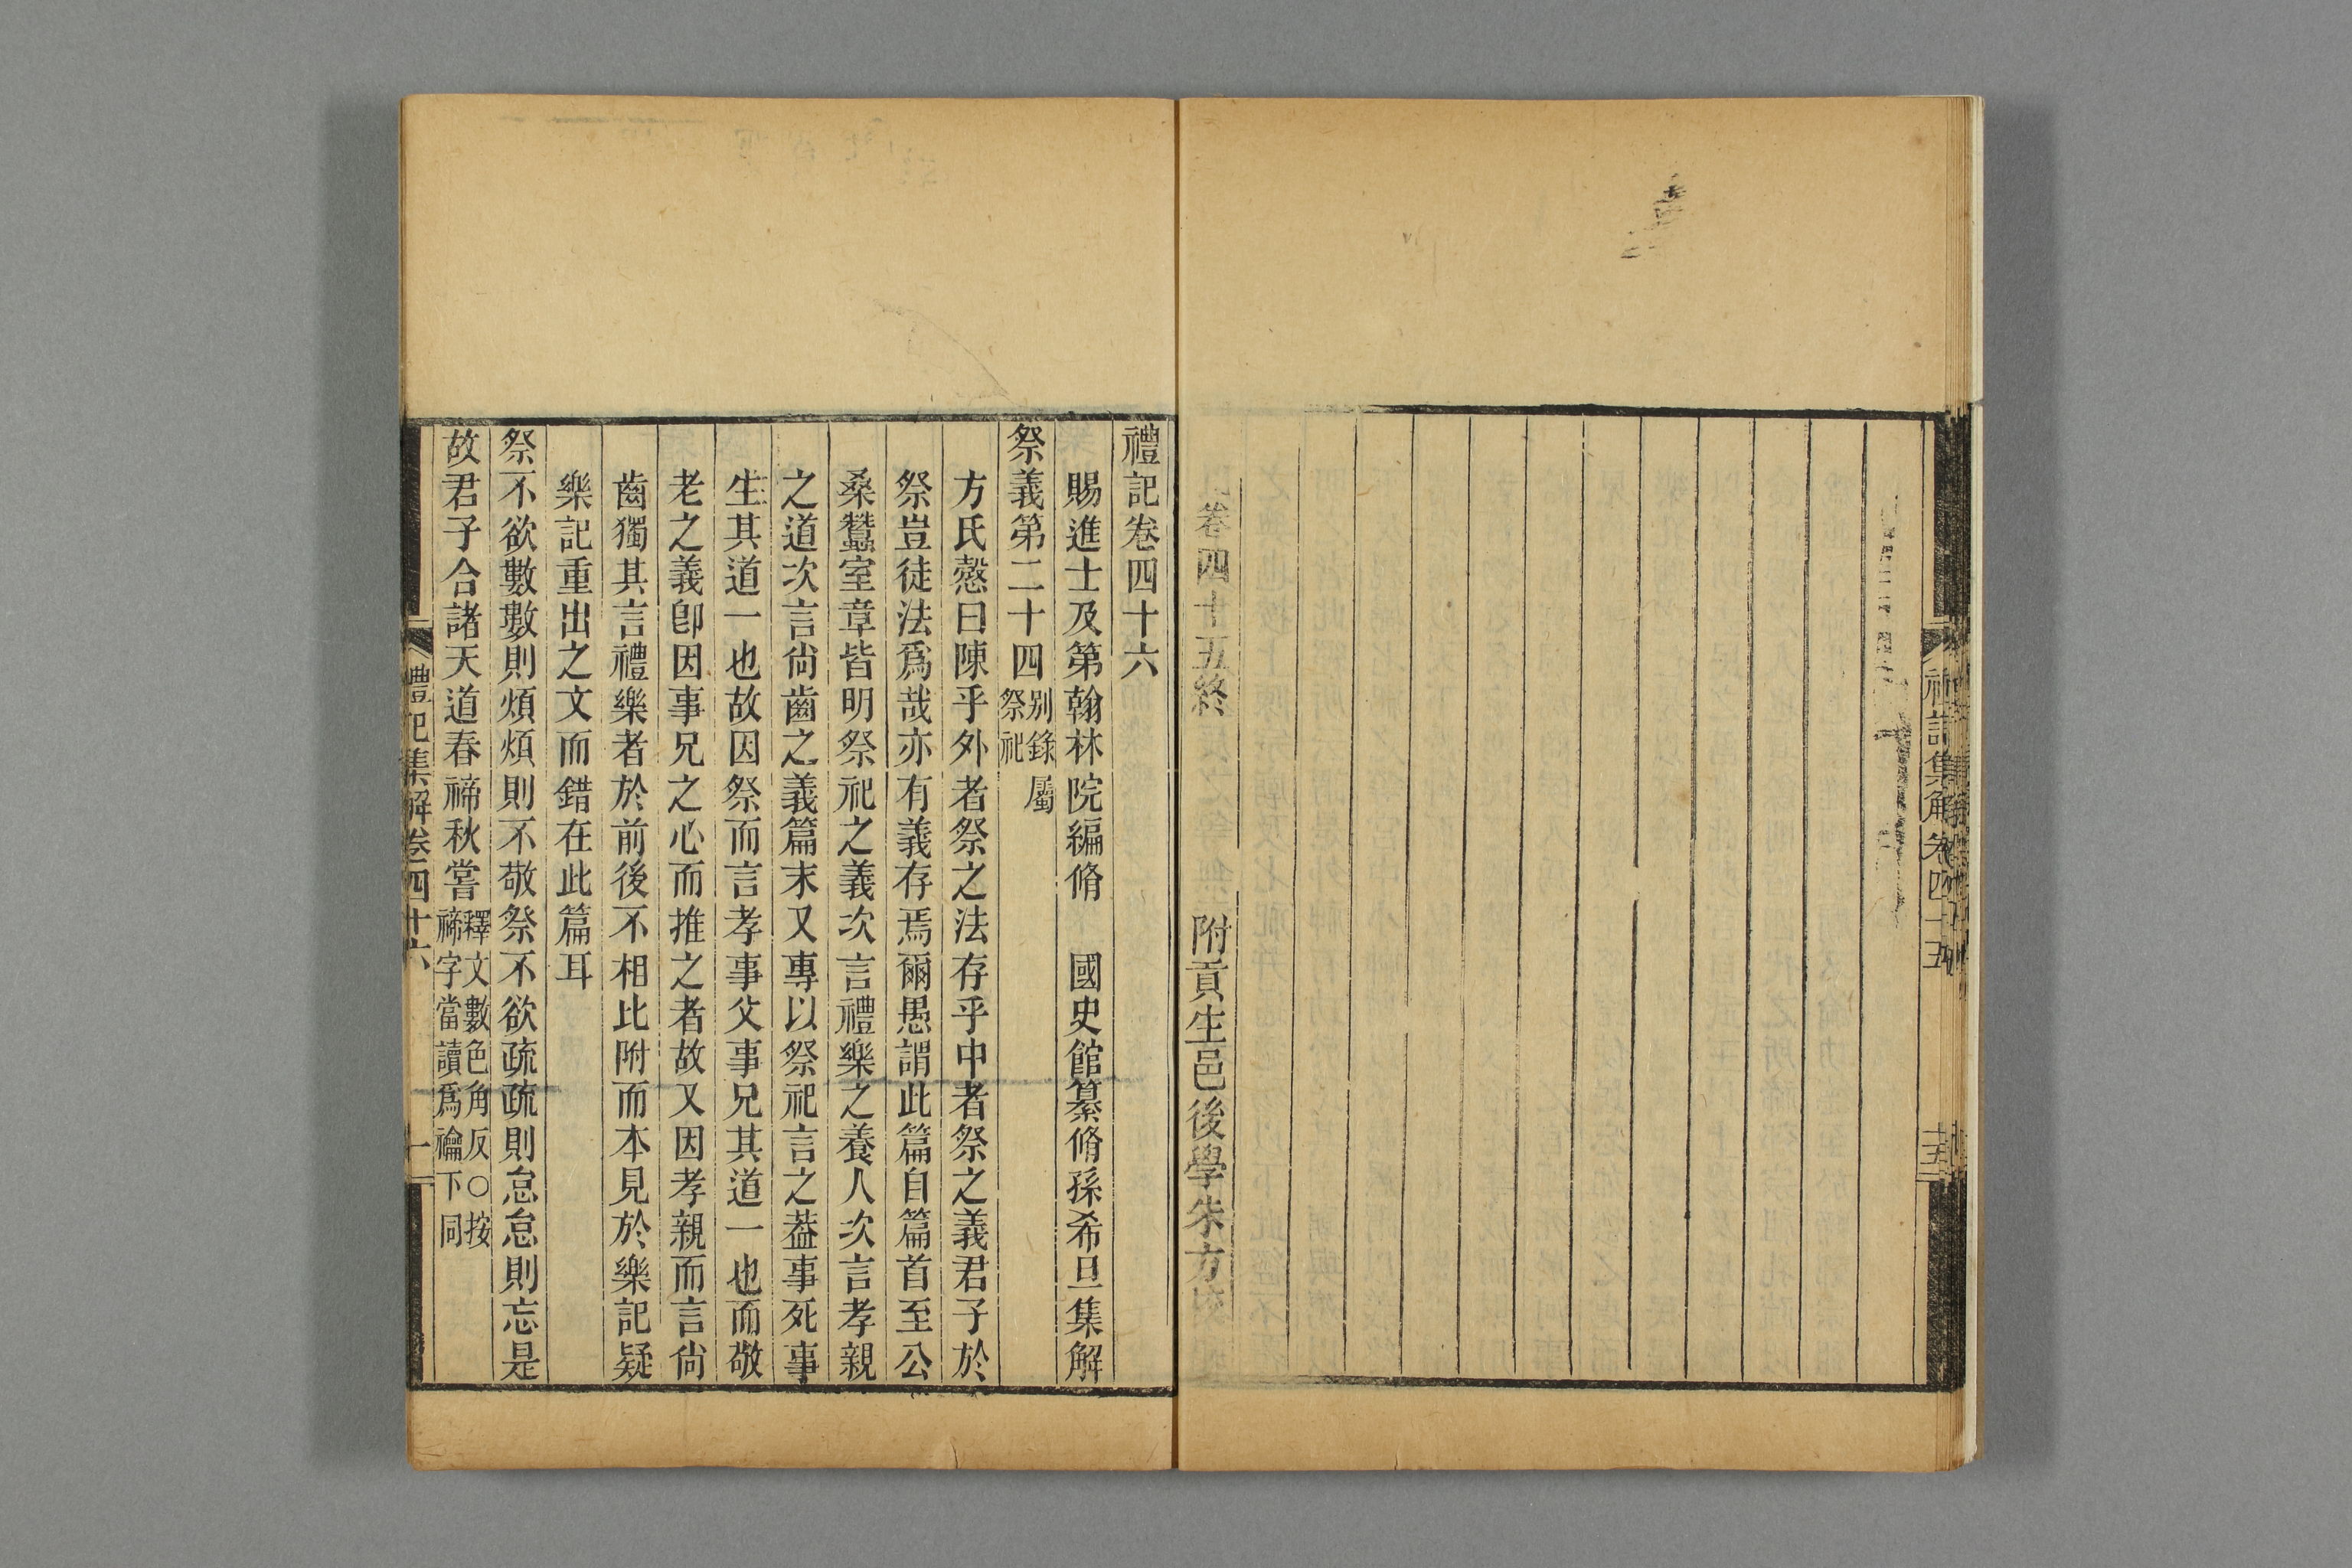 禮記集解卷四十五
卷四十五終 附貢生邑後學朱方校
禮記卷四十六
賜進士及第翰林院編脩 國史館纂脩孫希旦集解
祭義第二十四 别錄屬祭祀
方氏慤曰陳乎外者祭之法存乎中者祭之義君子於
祭豈徒法爲哉亦有義存焉爾愚謂此篇自篇首至公
桑蠶室章皆明祭祀之義次言禮樂之養人次言孝親
之道次言尙齒之義篇末又專以祭祀言之葢事死事
生其道一也故因祭而言孝事父事兄其道一也而敬
老之義卽因事兄之心而推之者故又因孝親而言尙
齒獨其言禮樂者於前後不相比附而本見於樂記疑
樂記重出之文而錯在此篇耳
祭不欲數數則煩煩則不敬祭不欲疏疏則怠怠則忘是
故君子合諸天道春禘秋嘗 釋文數色角反○按禘字當讀爲禴下同
禮記集解卷四十六 一